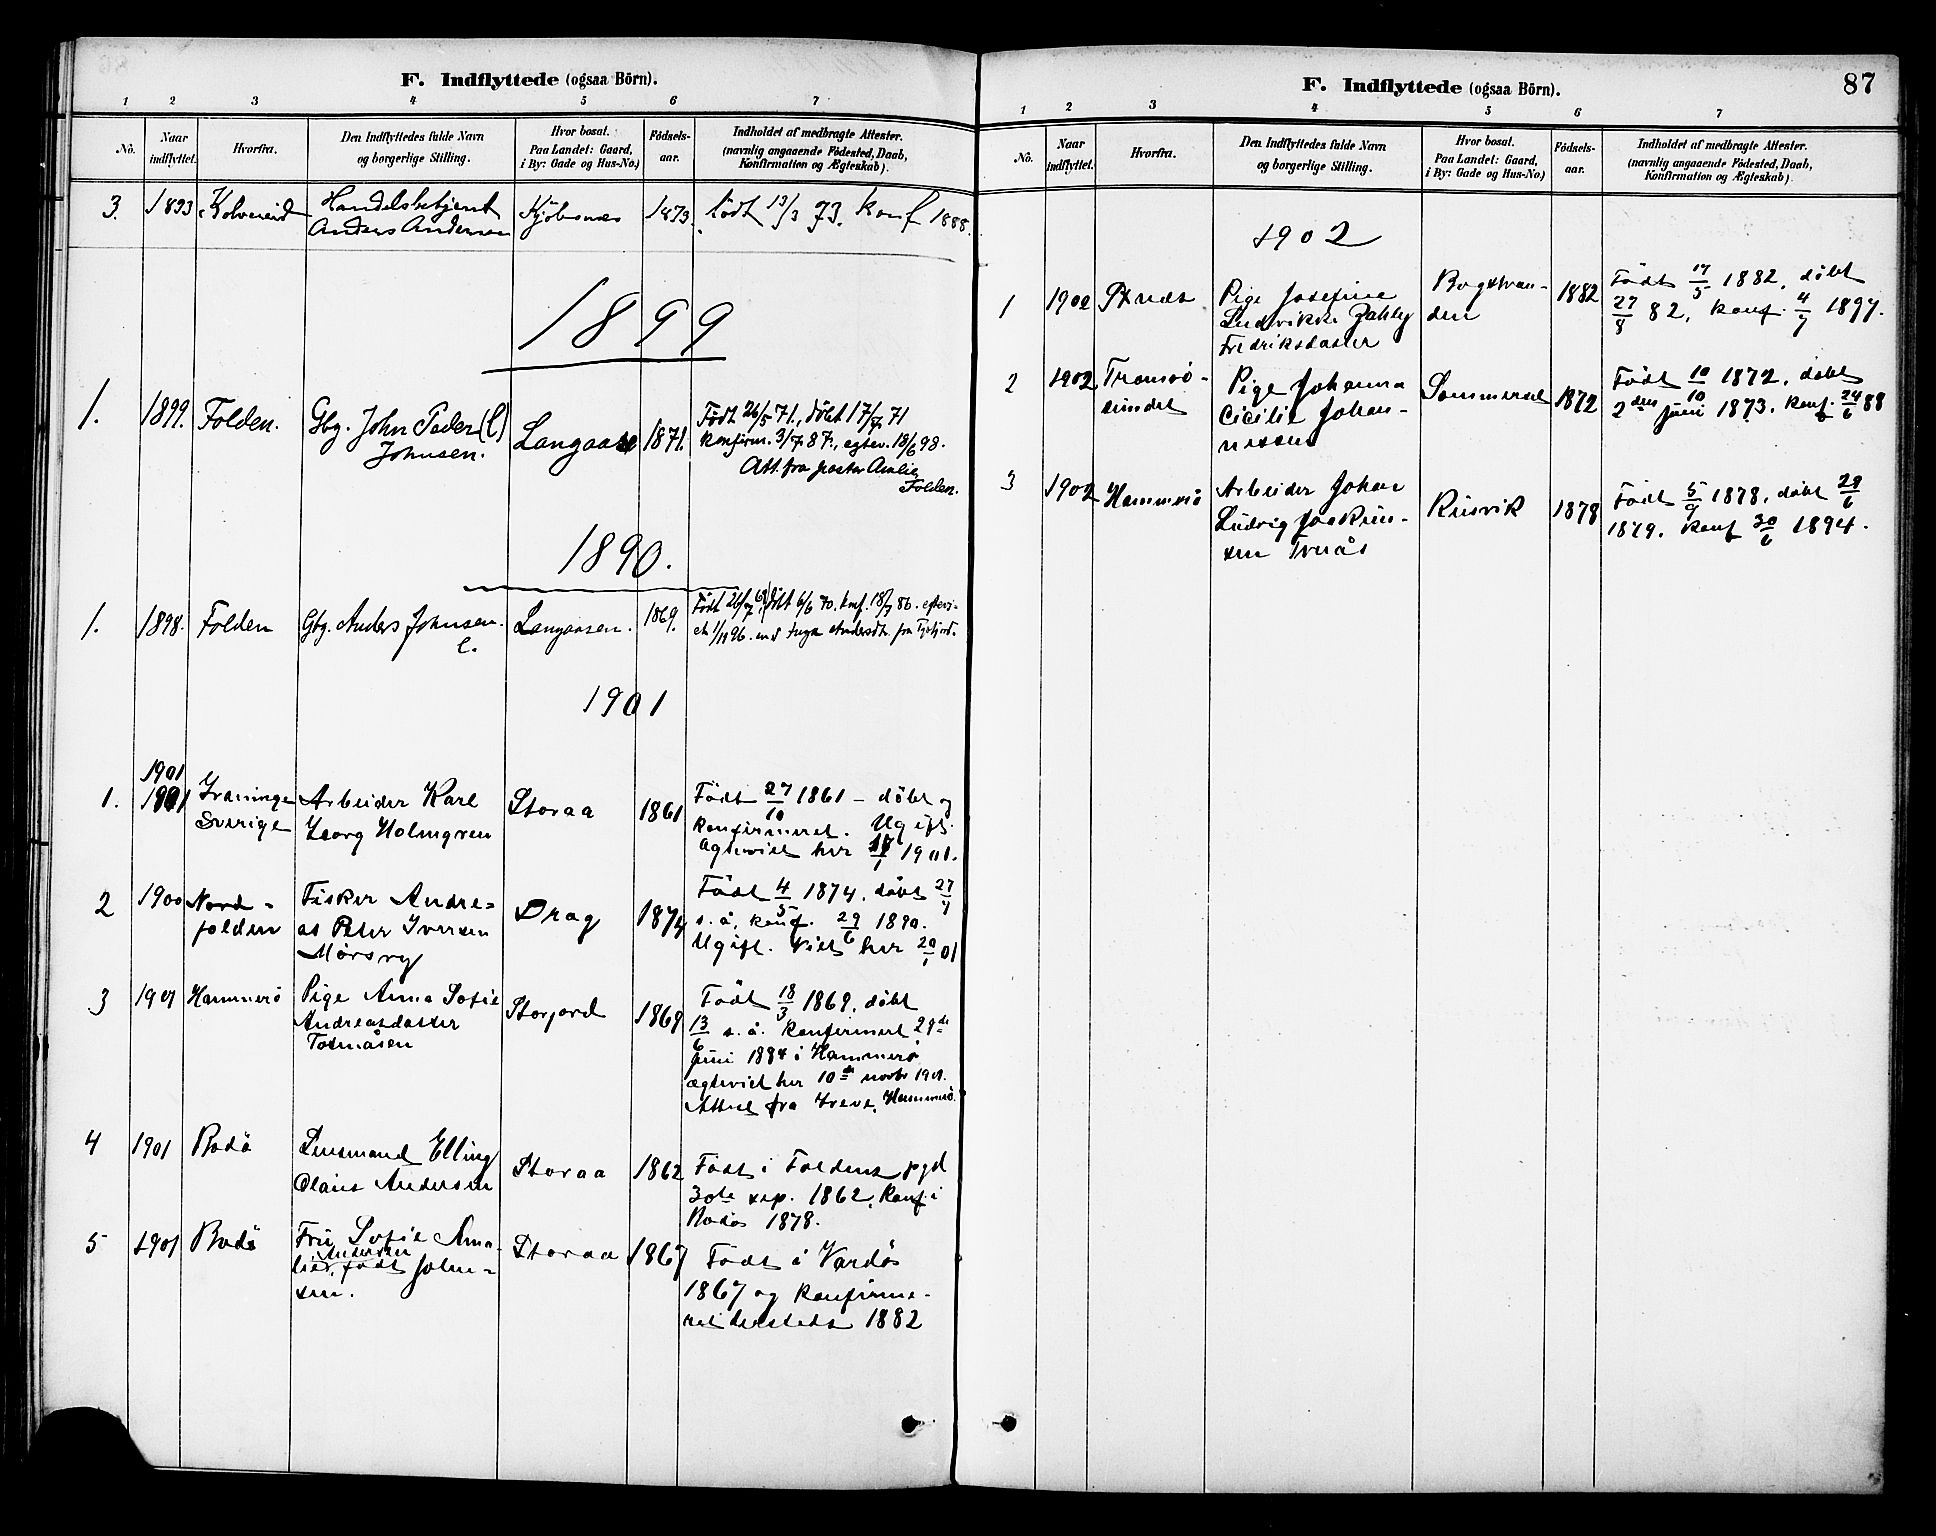 F. Indflyttede (ogsaa Börn).
1 2 3 4 5 6 7
No. Naar indflyttet. Hvorfra. Den Indflyttedes fulde Navn og borgerlige Stilling. Hvor bosat. Paa Landet: Gaard, i By: Gade og Hus-No.) Födsels-aar. Indholdet af medbragte Attester. (navnlig angaaende Födested, Daab, Konfirmation og Ægteskab).
3. 1893 Kolvereid Handelsbetjent Kjöbsnes 1873. født 13/3 73. konf 1888.
Anders Andersen
1899
1. 1899. Folden. Gbg. John Peder (L) Langaase 1871. Født 26/5 71., døbt 17/7 71
Johnsen. Konfirm. 3/7 87., egtev. 18/6 98.
Att. fra pastor
Folden.
1890.
1. 1898. Folden Gbg. Anders Johnsen. Langaasen. 1869. Født 26/7 69, døbt 6/6 70. konf. 18/7 86. eftevi-
L. et 1/11 96. med Inga Andersdtr fra
1901
1901
1. 1901 Arbeider Karl Storaa 1861 Född 27/10 1861 - döbt og
Sverige Georg Holmgren konfirmeret. Ugift.
Ægteviet her 1901.
2 1900 Nord- Fisker Andre- Drag 1874 Född 4/5 1874. döbt 27/7
folden as Peter Iversen s.å. konf. 29/6 1890.
Mørsry Ugift. Viet her 20/1 01
3 1901 Hammerö Pige Anna Sofie Storjord 1869 Född 18/3 1869. döbt
Andreasdatter 13/6 s.å. konfirmert 29de
Totmåsen juni 1884 i Hammerö
ægteviet her 10de novbr 1901.
Attest fra Greve, Hammerö.
4 1901 Bodö Lensmand Elling Storaa 1862 Född i Foldens pgd
Olaus Andersen 30te sep. 1862. konf. i
Bodös 1878.
5 1901 Bodö Fru Sofie Ama- Storaa 1867 Född i Vardös
Andersen
lie, född John- 1867 og konfirme-
sen. ret dersteds 1882
F. Indflyttede (ogsaa Börn). 87
1 2 3 4 5 6 7
No. Naar indflyttet. Hvorfra. Den Indflyttedes fulde Navn og borgerlige Stilling. Hvor bosat. Paa Landet: Gaard, i By: Gade og Hus-No.) Födsels-aar. Indholdet af medbragte Attester. (navnlig angaaende Födested, Daab, Konfirmation og Ægteskab).
1902
1 1902 Pige Josefine Bogstran- 1882 Född 17/5 1882, döbt
Ludvikke Zahly den 27/8 82, konf. 4/7 1897.
Fredriksdatter
2 1902 Tromsö- Pige Johanna Sommerset 1872 Född 10/10 1872, döbt
sundet Cicilie Johan- 2den juni 1873. konf. 24/6 88
nessen
3 1902 Hammerö Arbeider Johan Rusvik 1878 Född 5/9 1878. döbt 29/6
Ludvig Joakim- 1879. konf 30/6 1894.
sen Tverås